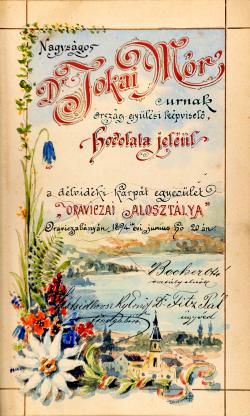 Nagyságos
Dr. Jókai Mór
urnak
ország gyülési képviselő
Hódolata jeléül
a délvidéki kárpát egyesület
"ORAVICZAI ALOSZTÁLYA"
Oraviczabányán, 1894 évi junius hó 20án.
Becher
Dr. Fitz Pál
ügyvéd